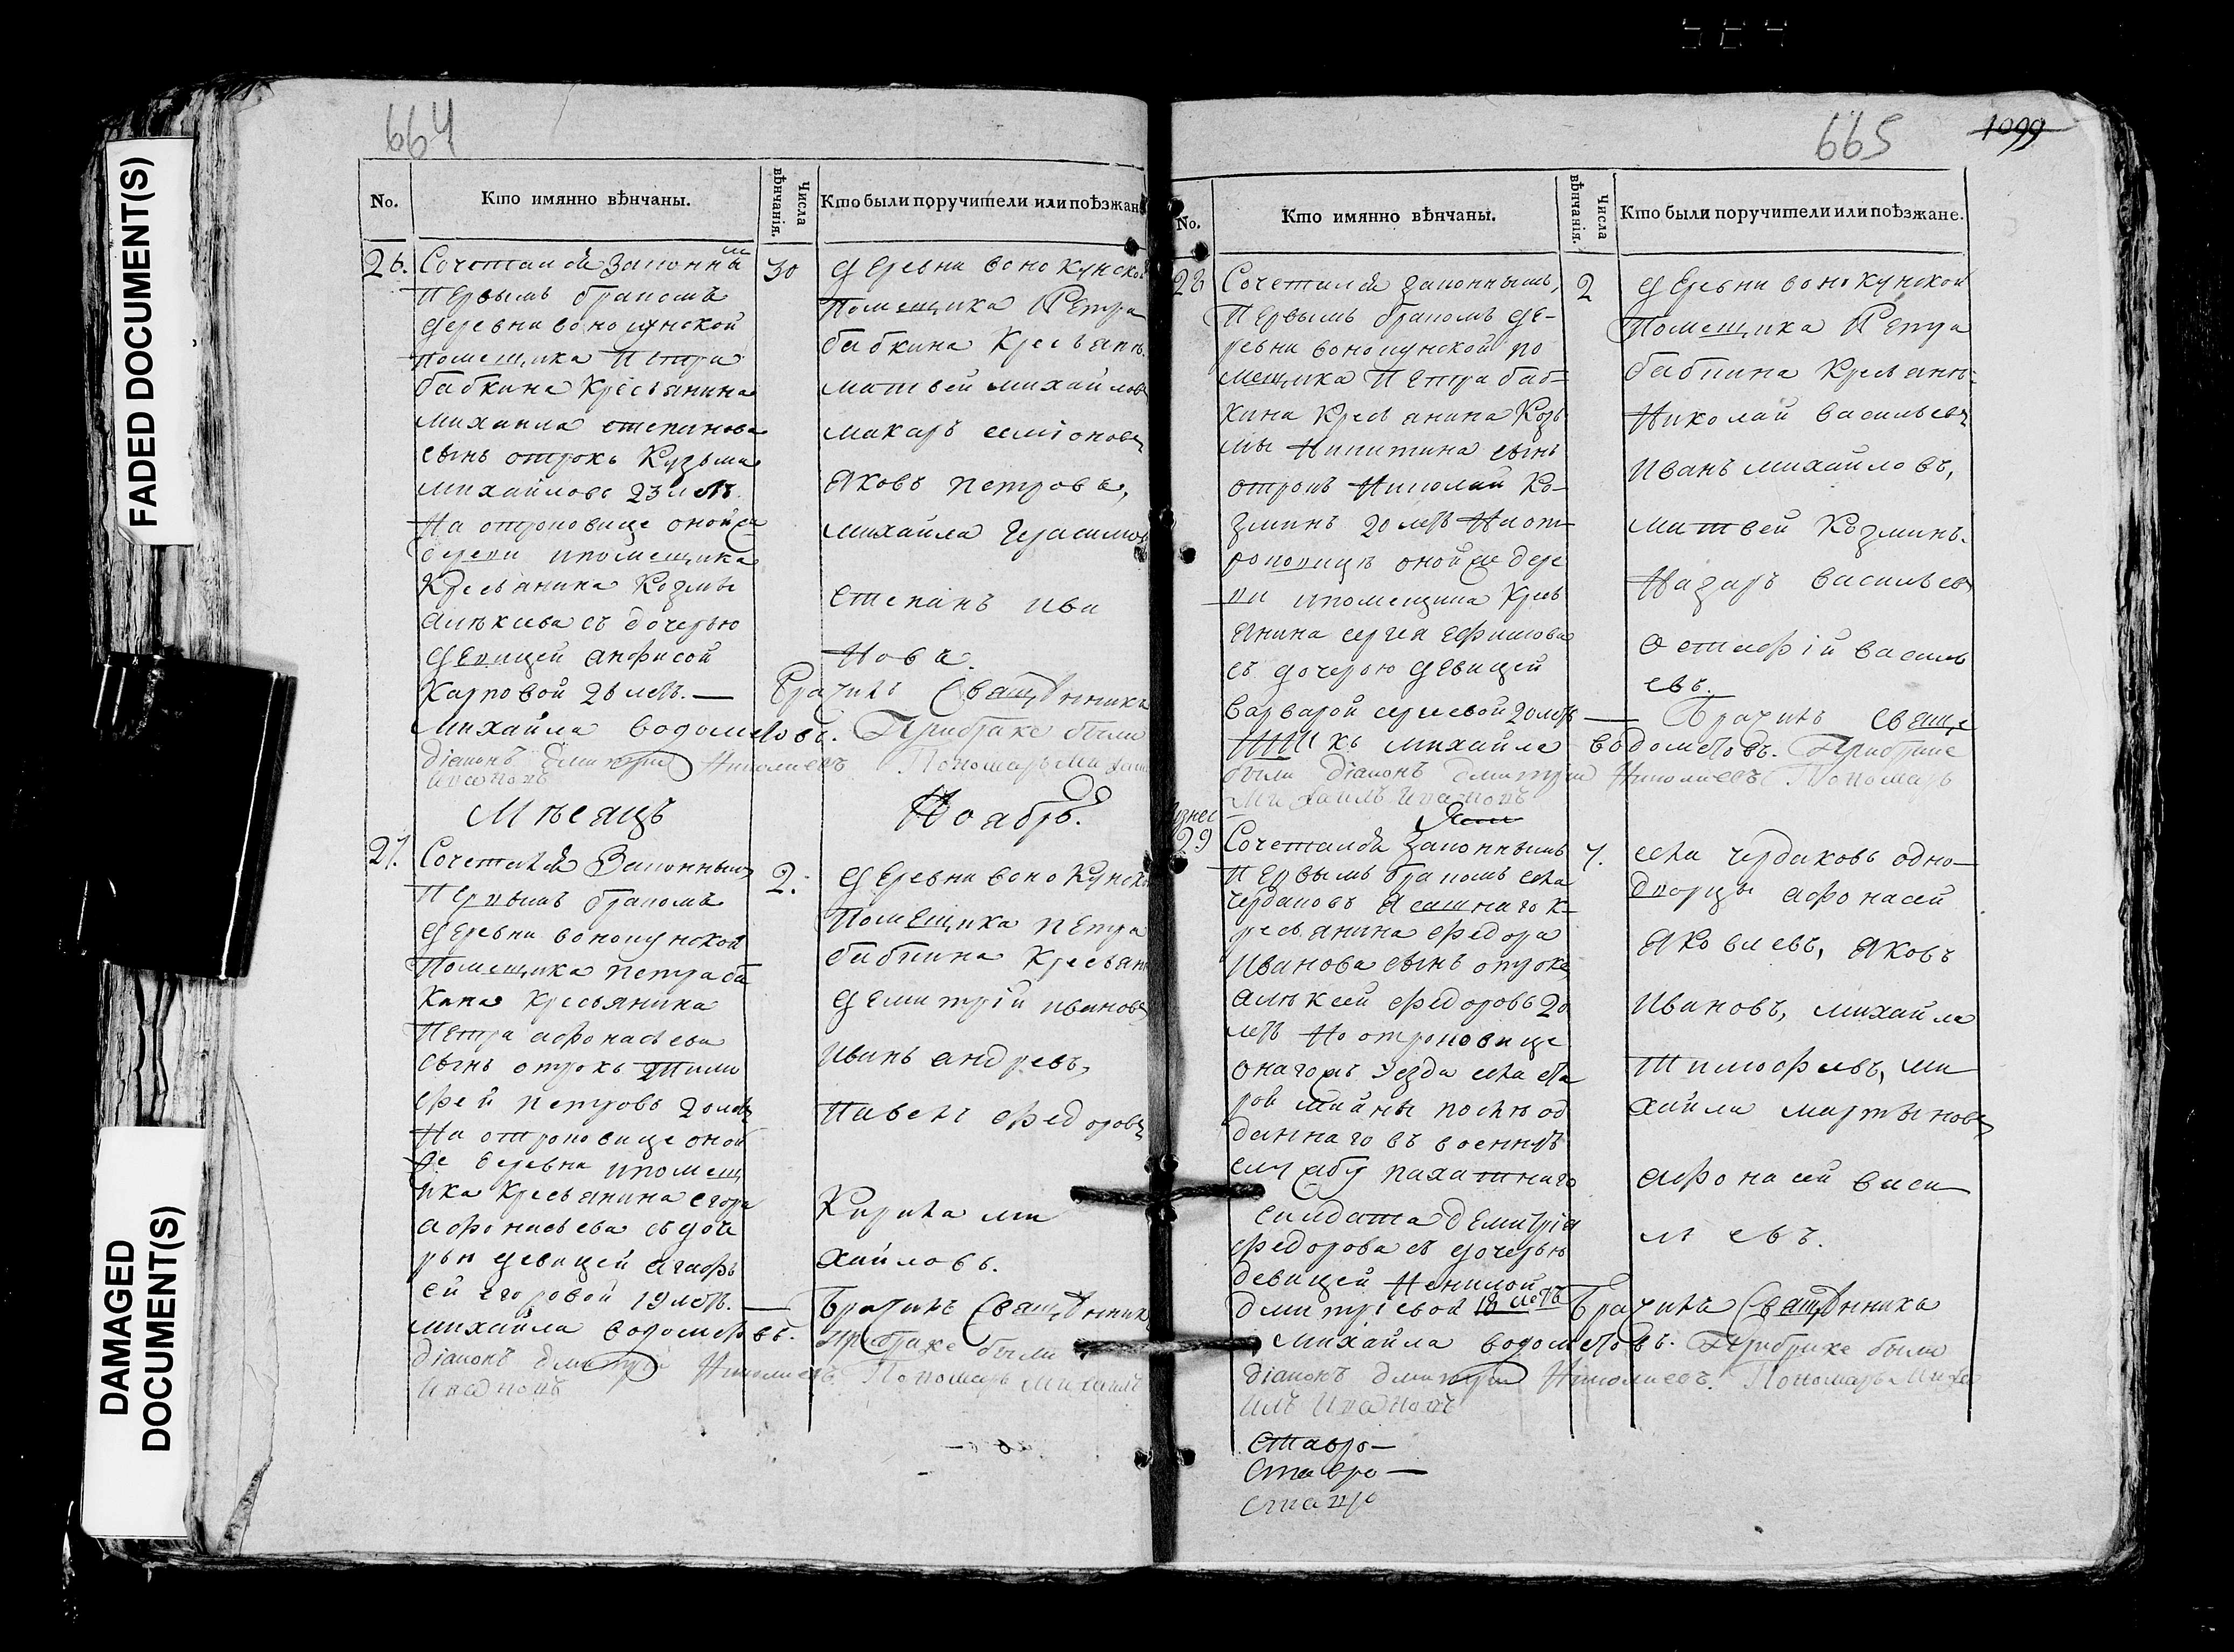 FADED DOCUMENT(S)
DAMAGED
DOCUMENT(S)
664
No.
Кто имянно вѣнчаны.
Числа
вѣнчанія.
Кто были поручители или поѣзжан
26.
Сочетался законны
Первымъ бракомъ
деревни вонокунской
помещика Петра
бабкина Кресьянина
михаила степанова
сынъ отрокъ Кузьма
михайловъ 23 летъ
На отроковице оной
деревни
помещика
Кресьянина Козмы
алѣксева съ дочерью
девицей анфисой
Карповой 26 летъ. —
30
деревни вонокунской
Помещика Петра
бабкина Кресьянъ
матвей михайловъ
макаръ семіоновъ
яковъ петровъ,
михайла герасимов
степанъ ива
новъ.
Врачилъ Священника
михайла водолеговъ. Прибраке были
діаконъ дмитрій Николаевъ Пономарь миха
Ивановъ
Мѣсяцъ Ноябръ.
27.
Сочетался Законнымъ
Первымъ бракомъ
деревни вонокунской
Помещика петра ба
кина кресьянина
Петра афонасьева
сынъ отрокъ тимо
фей петровъ 20 летъ
На отроковице оной
же деревни
помещ
ика кресьянина егора
афонасьева съ доч
рью девицей агафь
ей егоровой 19 летъ. —
2.
деревни вонокунской
Помещика петра
бабкина Кресьян
демитрій ивановъ
иванъ андревъ,
Павелъ федоровъ
Кирила ми
хайловъ.
Врачилъ Священник
михайла
прибраке были
діаконъ дмитрій Николаевъ Пономарь михаилъ
Ивановъ
665
1099
No.
Кто имянно вѣнчаны.
Числа
вѣнчанія.
Кто были поручители или поѣзжане.
28
Сочетался законнымъ,
Первымъ бракомъ де-
ревни вонокунской по
мещика Петра баб-
кина Кресьянина Козь
мы Никитина сынъ
отрокъ Николай Ко-
зминъ 20 летъ На от-
роковицѣ оной же дере
вни
помещика Кресь
янина сергея ефимова
съ дочерью девицей
варварой сергеевой 20 летъ —
2
деревни вонокунской
Помещика Петра
бабкина Кресьянъ
Николай васильевъ
иванъ михайловъ,
матвей Козминъ.
Назаръ васильев
остафій василь
евъ.
Врачилъ Свяще
михайла
Прибраке
были діаконъ дмитрій Николаевъ Пономарь
Михаилъ Ивановъ
29
Сочетался законнымъ
Первымъ бракомъ села
чердаковъ ясашнаго к-
ресьянина федора
Иванова сынъ отрокъ
алѣксей федоровъ 20
летъ На отроковице
онагожъ уезда села ста
рой майны послѣ од
даннаго въ военную
службу пахатнаго
салдата демитрія
федорова съ дочерью
девицей Ненилой
дмитріевой 18 летъ
7.
села чердаковъ одно-
дворцы афонасей
яковлевъ, яковъ
Ивановъ, михайла
Тимофеевъ, ми
хайла мартыновъ
афонасей васи
левъ.
Врачилъ Священника
михайла
Прибраке были
діаконъ дмитрій Николаевъ. Пономарь Миха
илъ Ивановъ
Ставро-
Ставро-
ставро